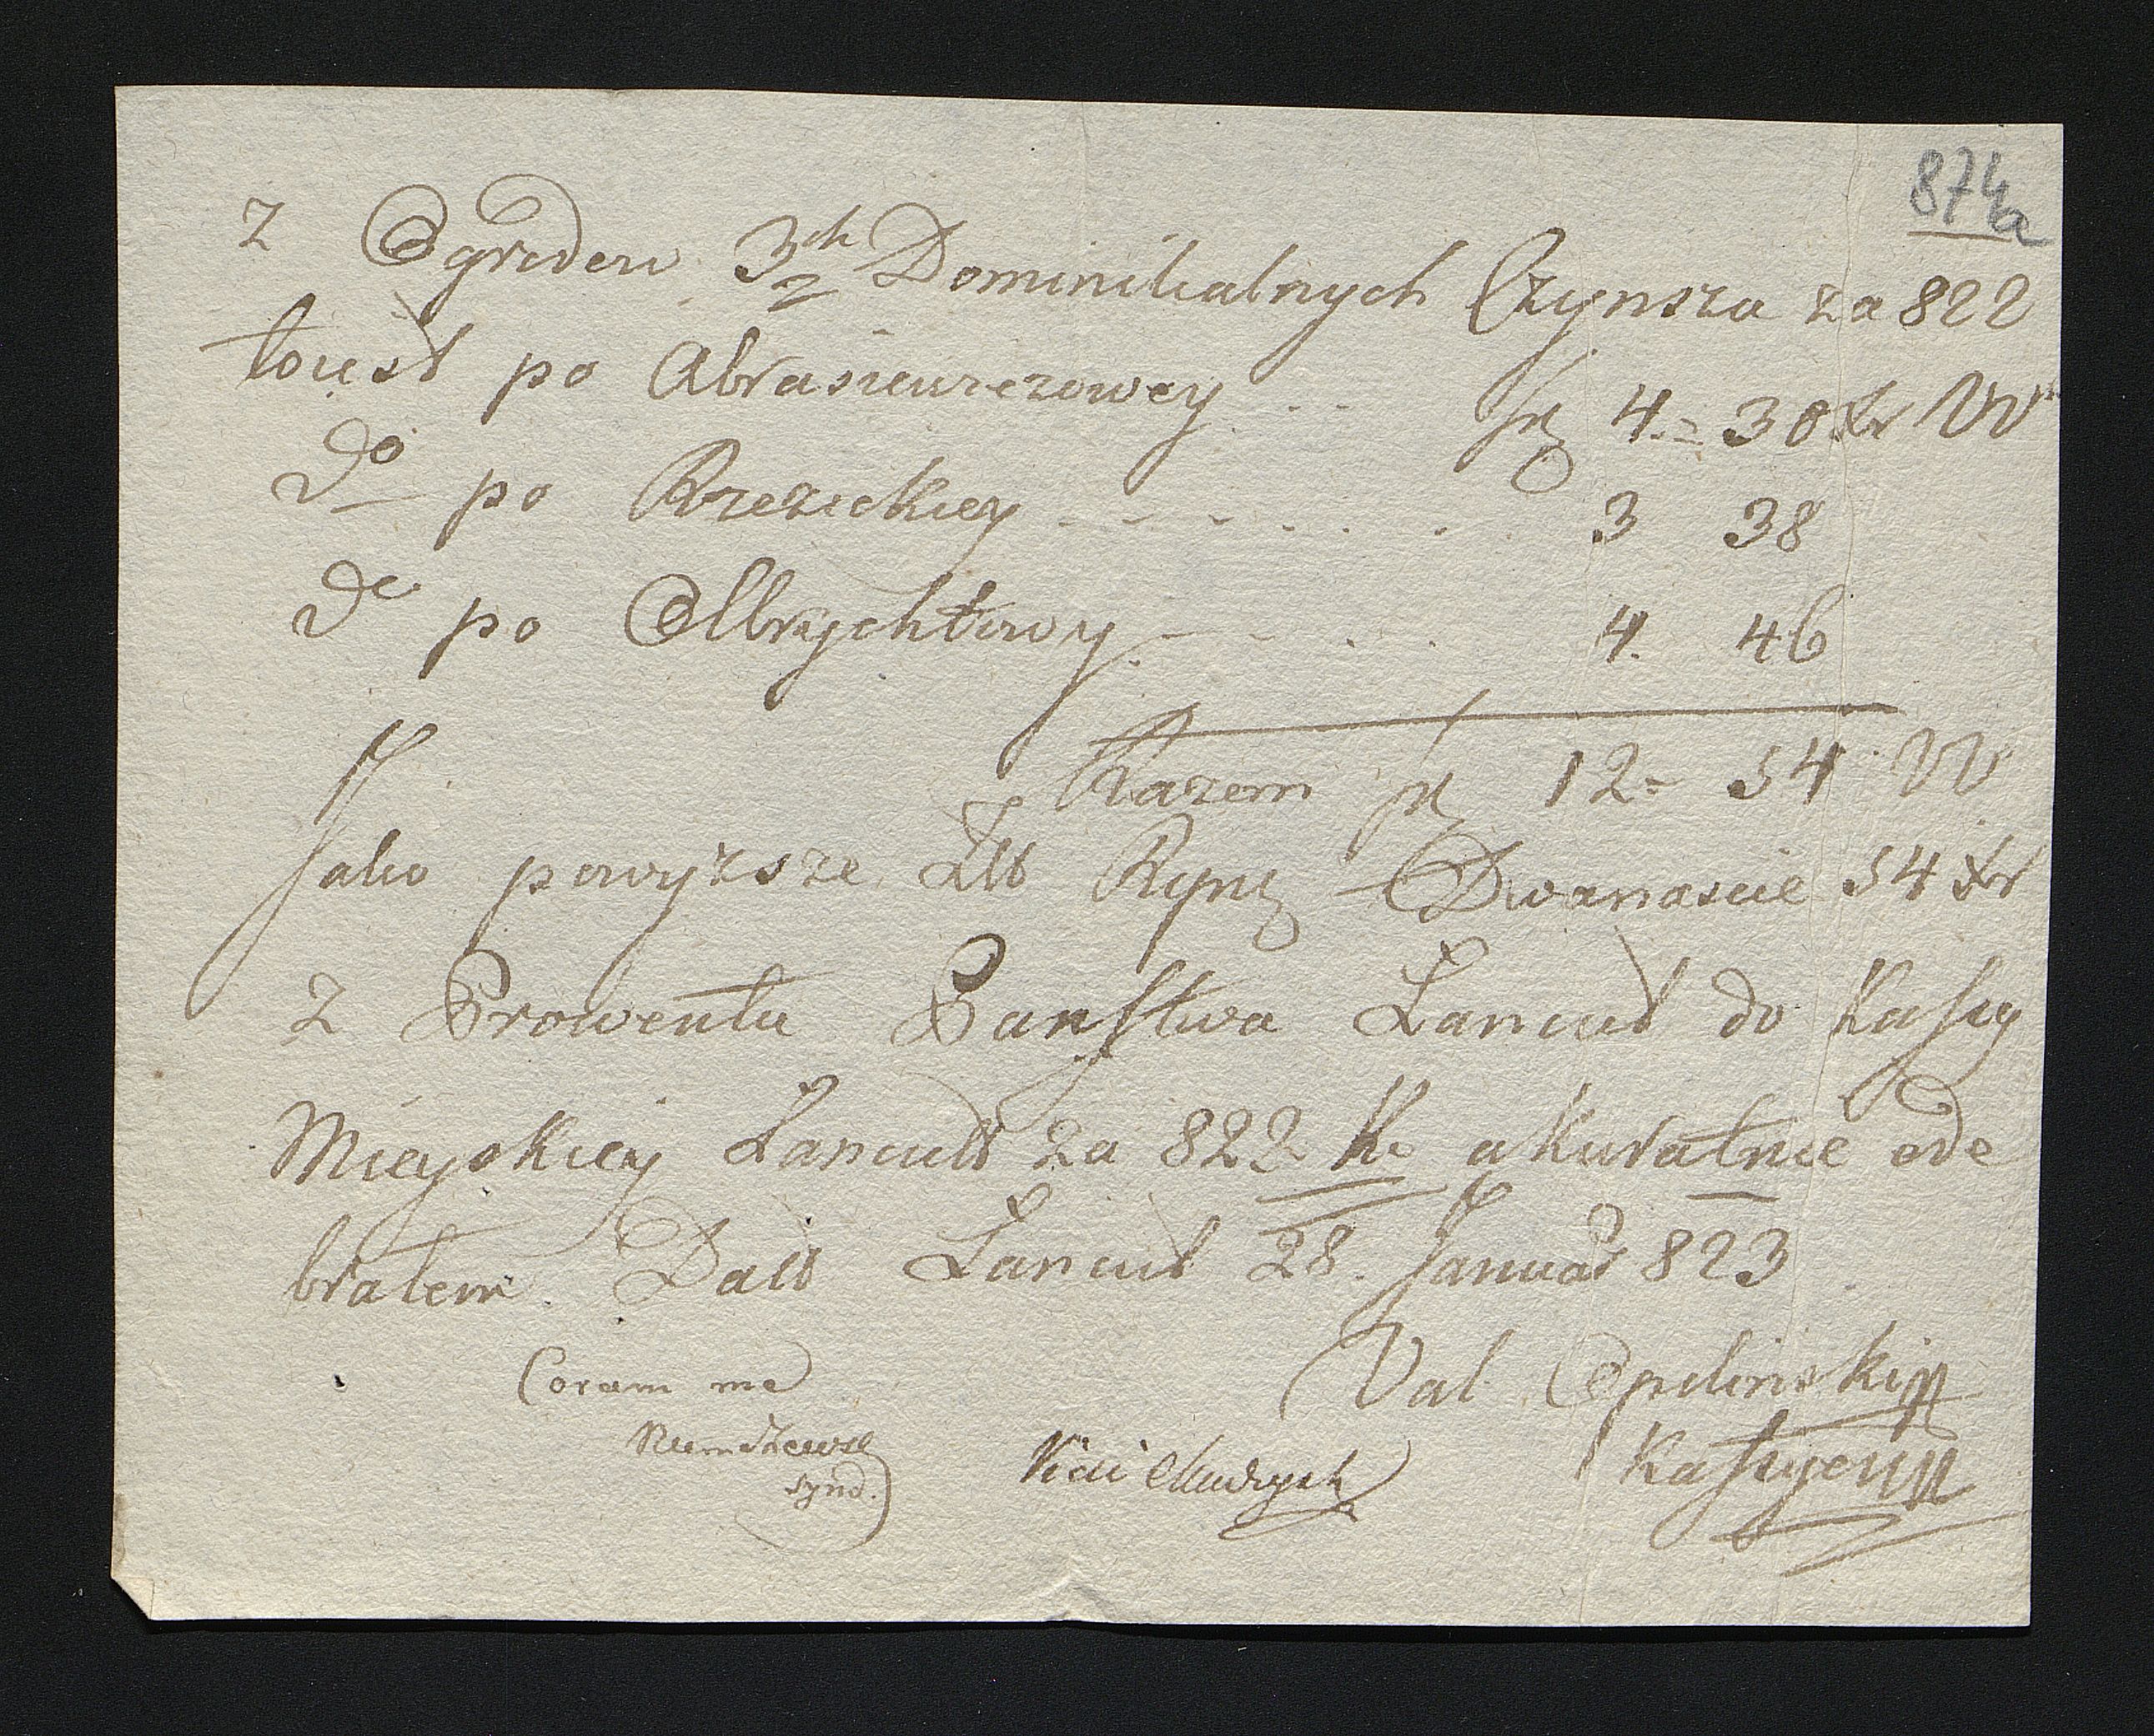 874a
Z Ogrodow 3ch Dominikalnych Czynszu za 822
toiest po Abrasiewiczowey .. fr 4.= 30 xr W
do po Rzezickiey ....... 3 38
do po Olbrychtowy .... 4. 46
Razem fr 12= 54 W
Jako powyzsze Złt Ryn Dwanascie 54 xr
z Prowentu Panstwa Łancut do Kassy
Mieyskiey Łancutt za 822 akuratnie ode
brałem Datt Łancut 28. Januar 823
Coram me
Val Opolinski
synd.
Kassyer